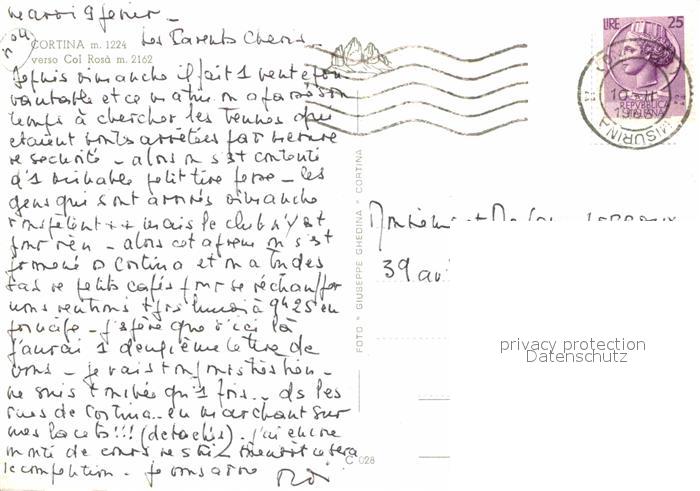 mardi 9 février -
les Parents Chéris -
CORTINA m. 1224
verso Col Rosà m. 2162
Depuis dimanche il fait 1 vent épou
vantable et ce matin on a passé son
temps à chercher les bennes qui
étaient toutes arrêtées par mesure
de sécurité - alors on s'est contenté
d'1 minable petit tire fesse - les
gens qui sont arrivés dimanche
rouspètent ++ mais le club n'y est
pour rien - alors cet aprem on s'est
promené à Cortina et on a bu des
tas de petits cafés pour se réchauffer
nous rentrons lundi à 9h25 en
principe - j'espère que d'ici là
j'aurai 1 deuxième lettre de
vous - je vais toujours très bien -
ne suis tombée qu'1 fois - ds les
rues de Cortina - en marchant sur
mes lacets !!! (détachés) - j'ai encore
monté de cours de ski bientôt ce sera
la compétition - je vous adore
FOTO * GIUSEPPE GHEDINA * CORTINA
C 028
LIRE 25
REPVBBLICA
ITALIANA
10 - II
MISURINA
Monsieur et
39 av
privacy protection
Datenschutz